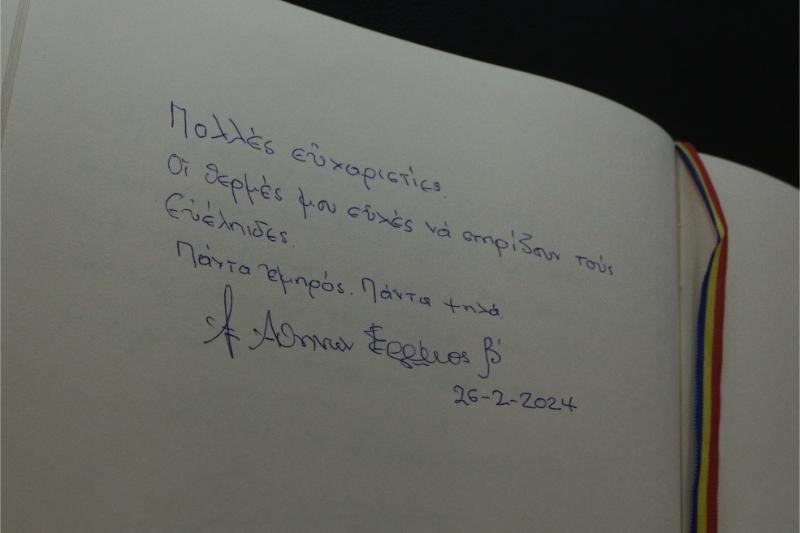 Πολλές εὐχαριστίες.
Οἱ θερμές μου εὐχές νά στηρίζουν τούς
Εὐέλπιδες.
Πάντα ἐμπρός. Πάντα ψηλά.
Ἀθηνῶν β΄
26-2-2024